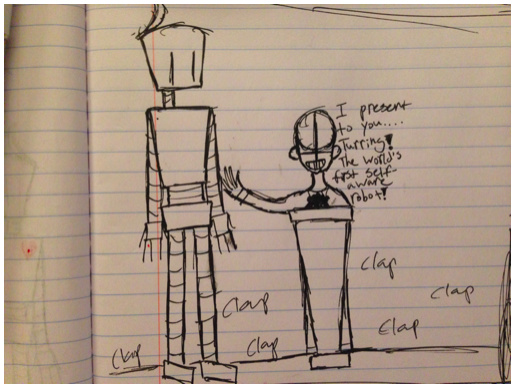 I present
to you....
Turring!
The world's
first self-
aware
robot!
clap
clap
clap
clap
clap
clap